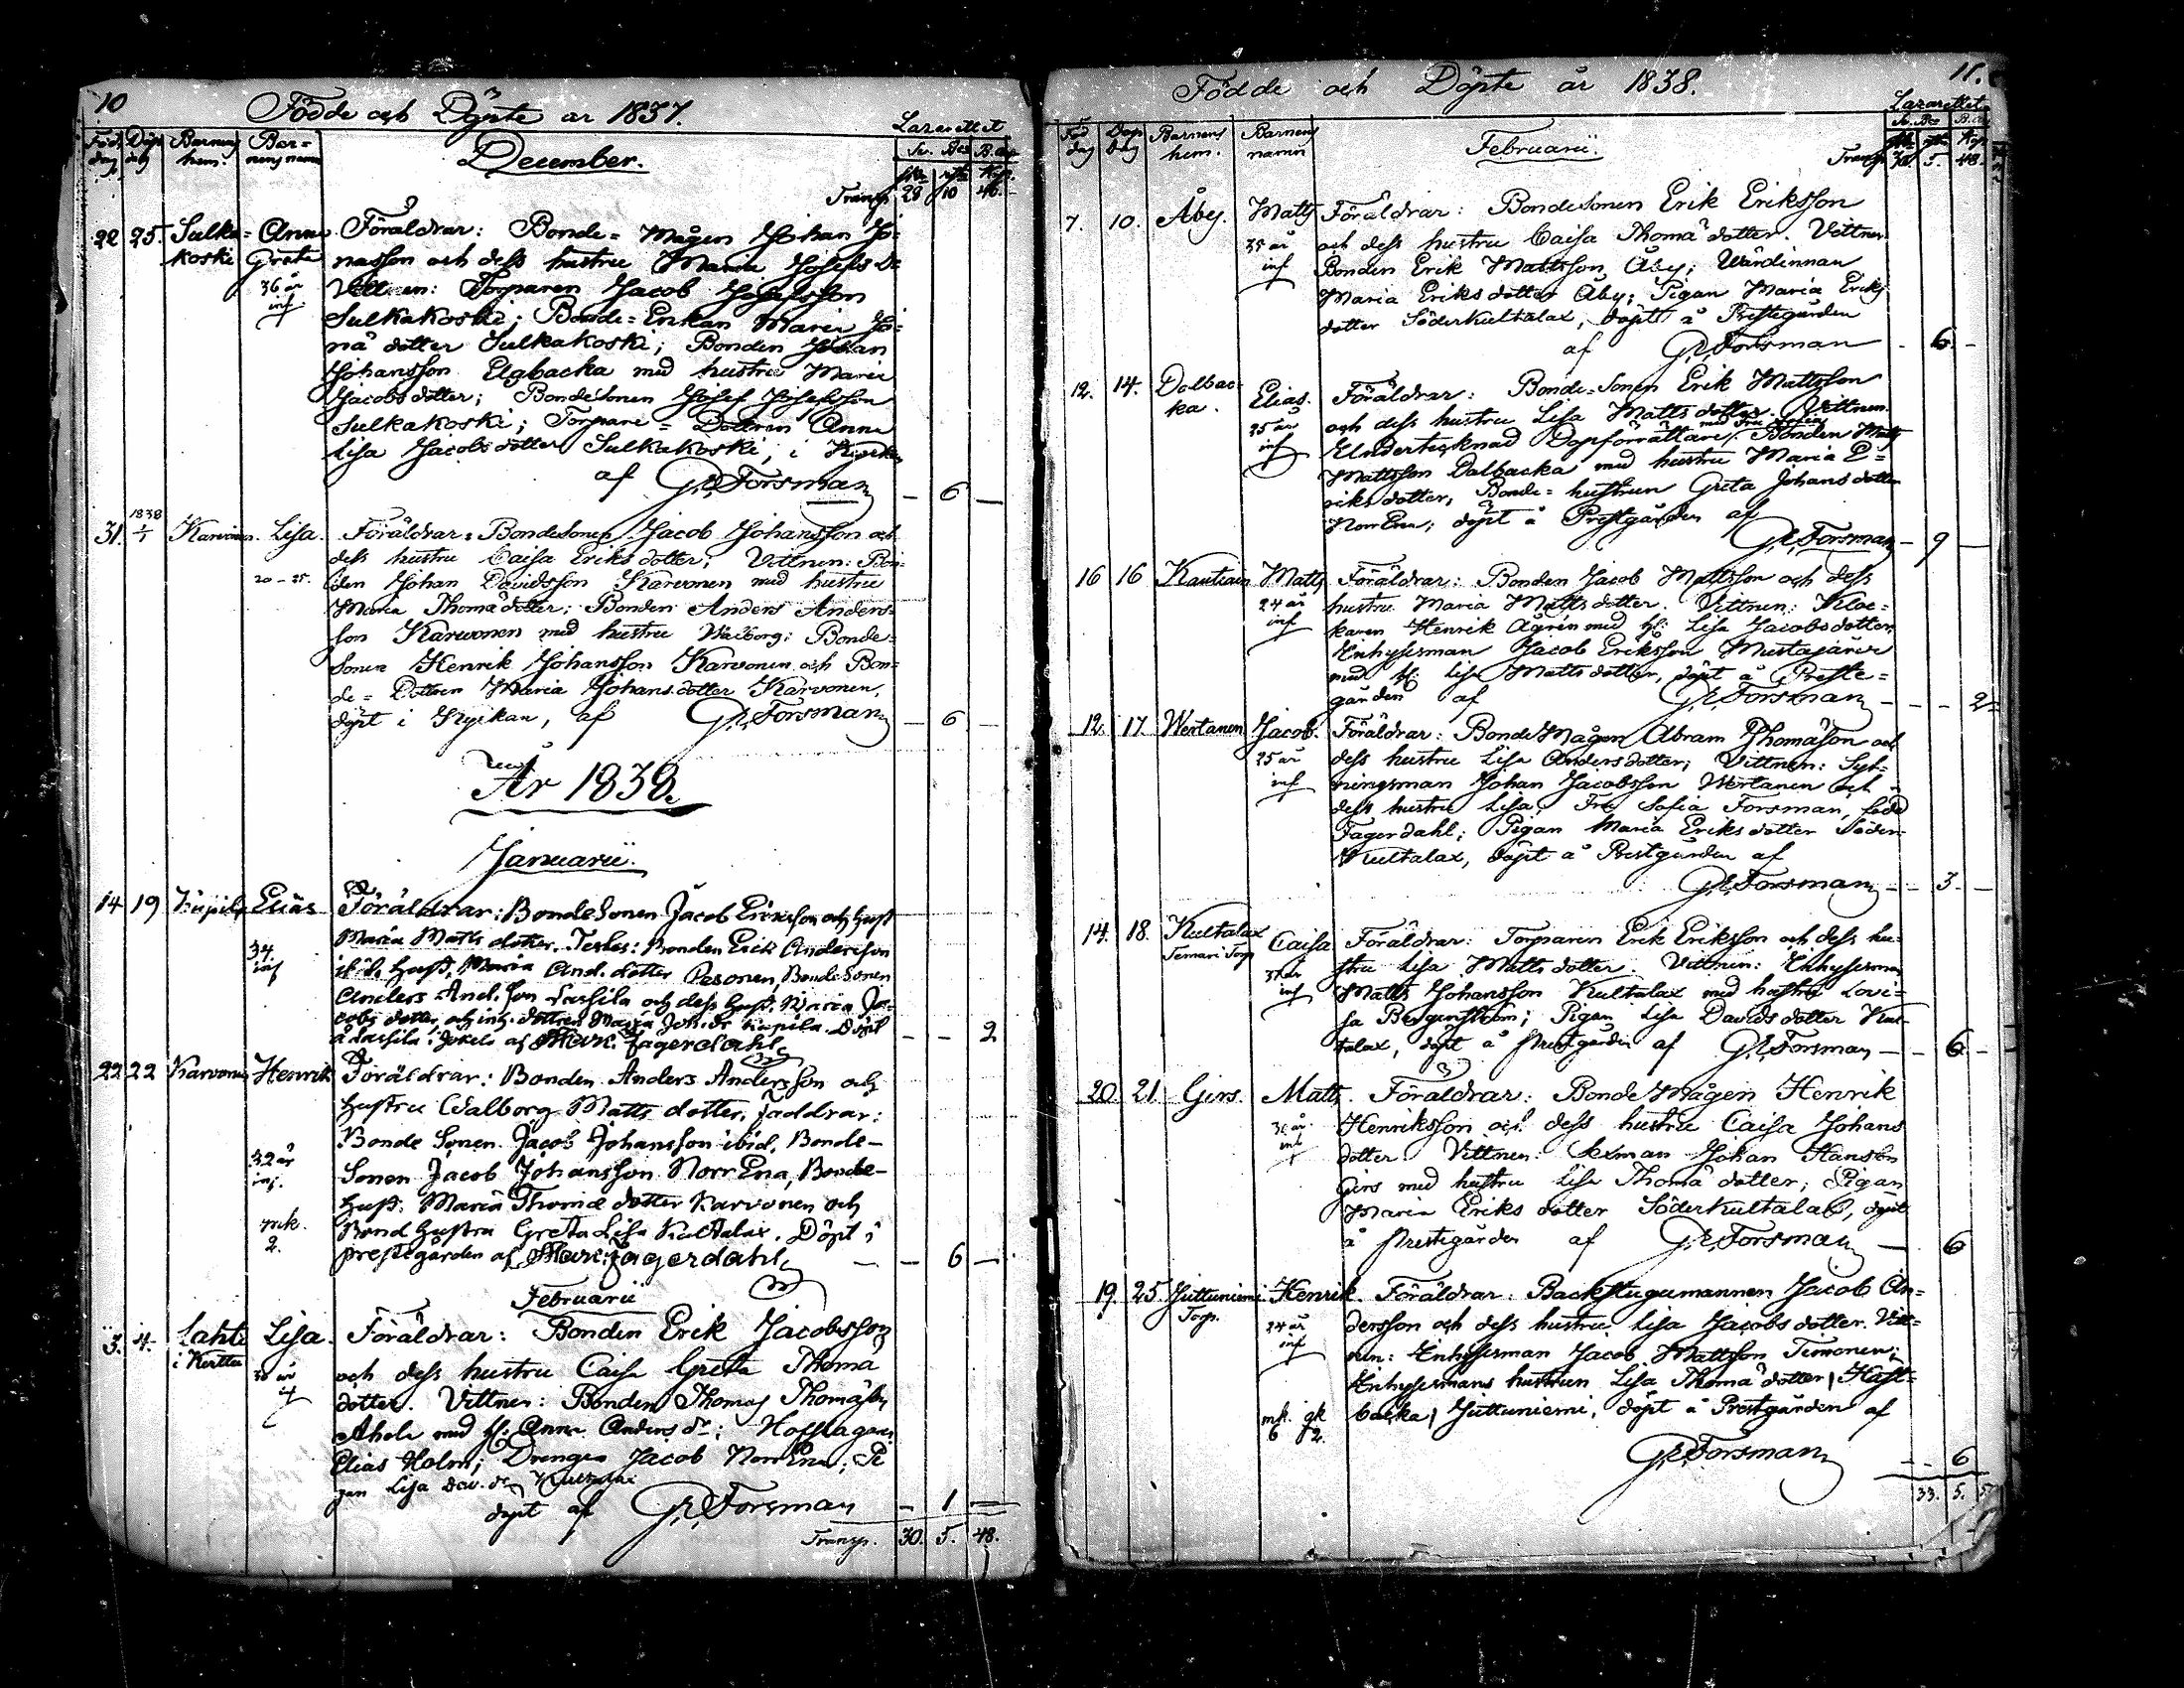 10
Födde och Döpte år 1837.
Lazarettet
Föd. dag
Döp dag
Barnens hem.
Barnens namn
December.
Sr. Bco B. ass
Rb rst. Kop.
Transp. 29 10 46.
22 25. Sulka= Anna Föräldrar: Bonde= Mågen Johan Jo=
koski Greta nasson och dess hustru Maria Josefs Dr
36 år Vittnen: Torparen Jacob Josefsson
inf Sulkakoski; Bonde=Enkan Maria Jo=
nä dotter Sulkakoski; Bonden Johan
Johansson Elgbacka med hustru Maria
Jacobs dotter; Bondesonen Josef Josefsson
Sulkakoski; Torpare=Dottren Anna
Lisa Jacobs dotter Sulkakoski, i Kyrkan
af G.E. Forsman — 6 —
31. 1838 1/1 Karvonen. Lisa. Föräldrar: Bondesonen Jacob Johansson och
dess hustru Caisa Eriks dotter; Vittnen: Bon-
20–25. den Johan Davidsson Karvonen med hustru
Maria Thomä dotter; Bonden Anders Anders-
son Karvonen med hustru Walborg; Bonde-
Sonen Henrik Johansson Karvonen och Bon-
de=Dottren Maria Johans dotter Karvonen,
döpt i Kyrkan, af G.E. Forsman — 6 —
År 1838.
Januarii.
14 19 Kupila Elias Föräldrar: BondeSonen Jacob Ericsson och hust
Maria Matts dotter. Testes: Bonden Erik Andersson
34. inf ibid. Hust. Maria And. dotter Pesonen, BondeSonen
Anders And.son Lassila och dess Hust. Maria Ja-
cobs dotter, och inh. dottren Maria Joh. dr Kupila. Döpt
å Lassila i Jokela af Fagerdahl — — 2
22 22 Karvonen Henrik Föräldrar: Bonden Anders Andersson och
Hustru Walborg Matts dotter. Faddrar:
Bonde Sonen Jacob Johansson ibid. Bonde-
32 år inf. Sonen Jacob Johansson NorrEna, Bonde-
Hust. Maria Thomä dotter Karvonen och
mk. 2. Bond Hustru Greta Lisa Kultalax. Döpt i
prestegården af Fagerdahl — 6 —
Februarii
3. 4. Lahti Lisa. Föräldrar: Bonden Erik Jacobsson
i Kerttu 30 år inf och dess hustru Caisa Greta Thomä
dotter. Vittnen: Bonden Thomas Thomäson
Ahola med h: Anna Anders dr; Hofslagaren
Elias Holm; Drengen Jacob NorrEna; Pi
gan Lisa Dav. dr Kultalax
döpt af G.E. Forsman — 1 —
Transp. 30. 5. 48.
11.
Födde och Döpte år 1838.
Lazarettet
Föd dag
Döp dag
Barnens hem.
Barnens namn
Februarii.
Sr. Bco B. ass
Transp 30. 5. 48.
7. 10. Åby. Matts Föräldrar: Bondesonen Erik Eriksson
35 år och dess hustru Caisa Thomä dotter. Vittnen
inf Bonden Erik Mattsson Åby; Wärdinnan
Maria Eriks dotter Åby; Pigan Maria Eriks
dotter Söderkultalax, döpt å Prestegården
af G.E. Forsman — 6. —
12. 14. Dalbac- Elias. Föräldrar: Bonde=Sonen Erik Mattsson
ka. 25 år och dess hustru Lisa Matts dotter. Vittnen.
inf Undertecknad Dopförrättare med Fru Sofia; Bonden Matts
Mattsson Dalbacka med hustru Maria E=
riks dotter, Bonde=hustrun Greta Johans dotter
NorrEna; döpt å Prestgården af
G.E. Forsman — 9 —
16 16 Kautiain Matts Föräldrar: Bonden Jacob Mattsson och dess
24 år hustru Maria Matts dotter. Vittnen: Kloc=
inf karen Henrik Ågren med h: Lisa Jacobs dotter,
Enhysesman Jacob Eriksson Mustajärvi
med h: Lisa Matts dotter, döpt å Preste=
gården af G.E. Forsman — — 2
12. 17. Wertanen Jacob. Föräldrar: BondeMågen Abram Thomäson och
25 år dess hustru Lisa Anders dotter; Vittnen: Syt-
inf ningsman Johan Jacobsson Wertanen och
dess hustru Lisa, Fru Sofia Forsman, född
Fagerdahl; Pigan Maria Eriks dotter Söder-
Kultalax, döpt å Prestgården af
G.E. Forsman — 3 —
14. 18. Kultalax Caisa Föräldrar: Torparen Erik Eriksson och dess hu-
Temari Torp inf stru Lisa Matts dotter. Vittnen: Enhysesman
Matts Johansson Kultalax med hustru Lovi=
sa Bergström; Pigan Lisa Davids dotter Kul-
talax, döpt å Prestgården af G.E. Forsman — 6 —
20 21 Girs. Matts. Föräldrar: BondeMågen Henrik
inf Henriksson och dess hustru Caisa Johans
dotter. Vittnen: Sexman Johan Hansson
Girs med hustru Lisa Thomä dotter; Pigan
Maria Eriks dotter Söderkultalax, döpt
å Prestegården af G.E. Forsman — 6
19. 25. Juttuniemi Henrik. Föräldrar: Backstugumannen Jacob An=
Torp. 24 år dersson och dess hustru Lisa Jacobs dotter. Vitt=
inf nen: Enhysesman Jacob Mattsson Timonen;
Enhysesmans hustrun Lisa Thomä dotter Hast=
mk. 6 gk 2. backa, Juttuniemi, döpt å Prestgården af
G.E. Forsman — 6
33. 5.